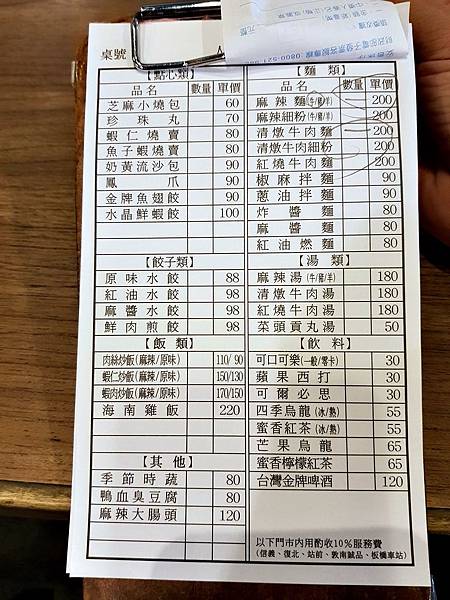 桌號
【點心類】
品名 數量 單價
芝麻小燒包 60
珍珠丸 70
蝦仁燒賣 80
魚子蝦燒賣 80
奶黃流沙包 90
鳳爪 90
金牌魚翅餃 90
水晶鮮蝦餃 100
【餃子類】
原味水餃 88
紅油水餃 98
麻醬水餃 98
鮮肉煎餃 98
【飯類】
肉絲炒飯(麻辣/原味) 110/90
蝦仁炒飯(麻辣/原味) 150/130
蝦肉炒飯(麻辣/原味) 170/150
海南雞飯 220
【其他】
季節時蔬 80
鴨血臭豆腐 80
麻辣大腸頭 120
【麵類】
品名 數量 單價
麻辣麵(牛/豬/羊) 200
麻辣細粉(牛/豬/羊) 200
清燉牛肉麵 200
清燉牛肉細粉 200
紅燒牛肉麵 200
椒麻拌麵 90
蔥油拌麵 90
炸醬麵 80
麻醬麵 80
紅油燃麵 80
【湯類】
麻辣湯(牛/豬/羊) 180
清燉牛肉湯 180
紅燒牛肉湯 180
菜頭貢丸湯 50
【飲料】
可口可樂(一般/零卡) 30
蘋果西打 30
可爾必思 30
四季烏龍(冰/熱) 55
蜜香紅茶(冰/熱) 55
芒果烏龍 65
蜜香檸檬紅茶 65
台灣金牌啤酒 120
以下門市內用酌收10%服務費
(信義、復北、站前、敦南誠品、板橋車站)